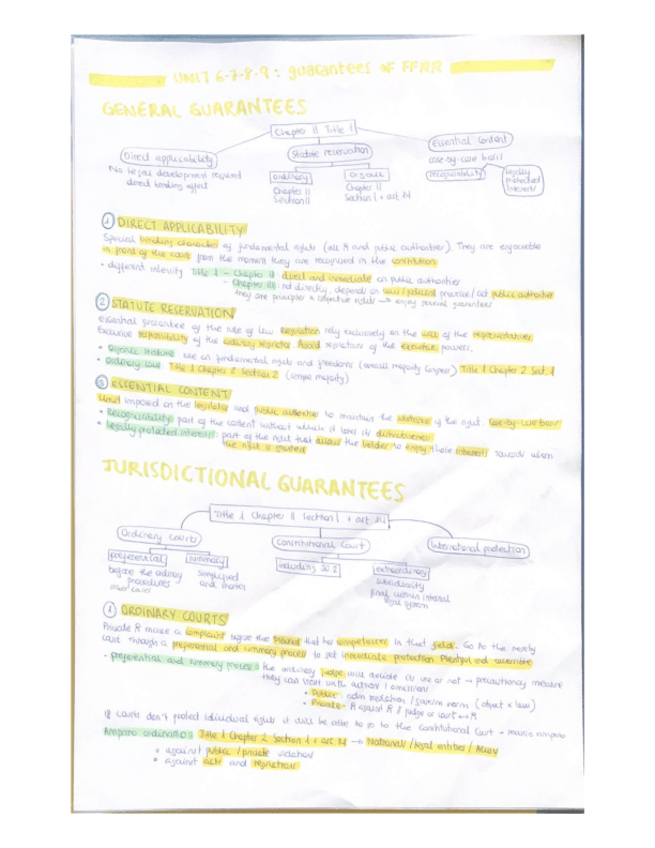 UNIT 6-7-8-9: guarantees of FFRR
GENERAL GUARANTEES
Chapter II Title 1
Direct applicability
Statute reservation
Essential Content
No legal development required
direct binding effect
ordinary
Chapter II
Section II
organic
Chapter II
Section 1 + art. 14
case-by-case basis
recognisability
legally
protected
interests
1 DIRECT APPLICABILITY
Special binding character of fundamental rights (all and public authorities). They are enforceable
in front of the court from the moment they are recognised in the constitution
• different intensity Title 1 - Chapter II: direct and immediate on public authorities
- Chapter III: not directly, depend on laws/judicial practice/act public authorities
they are principles objective rights → enjoy several guarantees
2 STATUTE RESERVATION
Essential guarantee of the rule of law. Regulation rely exclusively on the will of the representatives.
Exclusive responsibility of the ordinary legislator. Avoid of the executive powers.
• Organic statute: fundamental rights and freedoms (overall majority Congress) Title 1 Chapter 2 Sect. 1
• Ordinary law: Title 1 Chapter 2 Section 2 (simple majority)
3 ESSENTIAL CONTENT
Limit imposed on the legislator and public authorities to maintain the of the right. Case-by-case basis
• Recognisability: part of the content without which it loses its distinctiveness
• Legally protected interests: part of the right that allows the holder to enjoy those interests towards whom
the right is granted
JURISDICTIONAL GUARANTEES
Title 1 Chapter II Section 1 + art. 14
Ordinary courts
Constitutional Court
International protection
preferential
before the ordinary
procedures
other cases
summary
simplified
and shorter
including 30.2
extraordinary
subsidiarity
final within internal
legal system
1 ORDINARY COURTS
Private make a complaint before the tribunal that has competences in that field. Go to the
court through a preferential and summary process to get immediate protection. Plentiful and accessible
- preferential and summary process: the ordinary judge will decide or not → precautionary measure
they can start with action / omission
• Public: adm
• Private: against judge or court
If courts don't protect individual rights it will be able to go to the Constitutional Court amparo
Amparo ordinario: Title 1 Chapter 2 Section 1 + art. 14 → Nationals / legal entities / Aliens
• against public / private violation
• against acts and